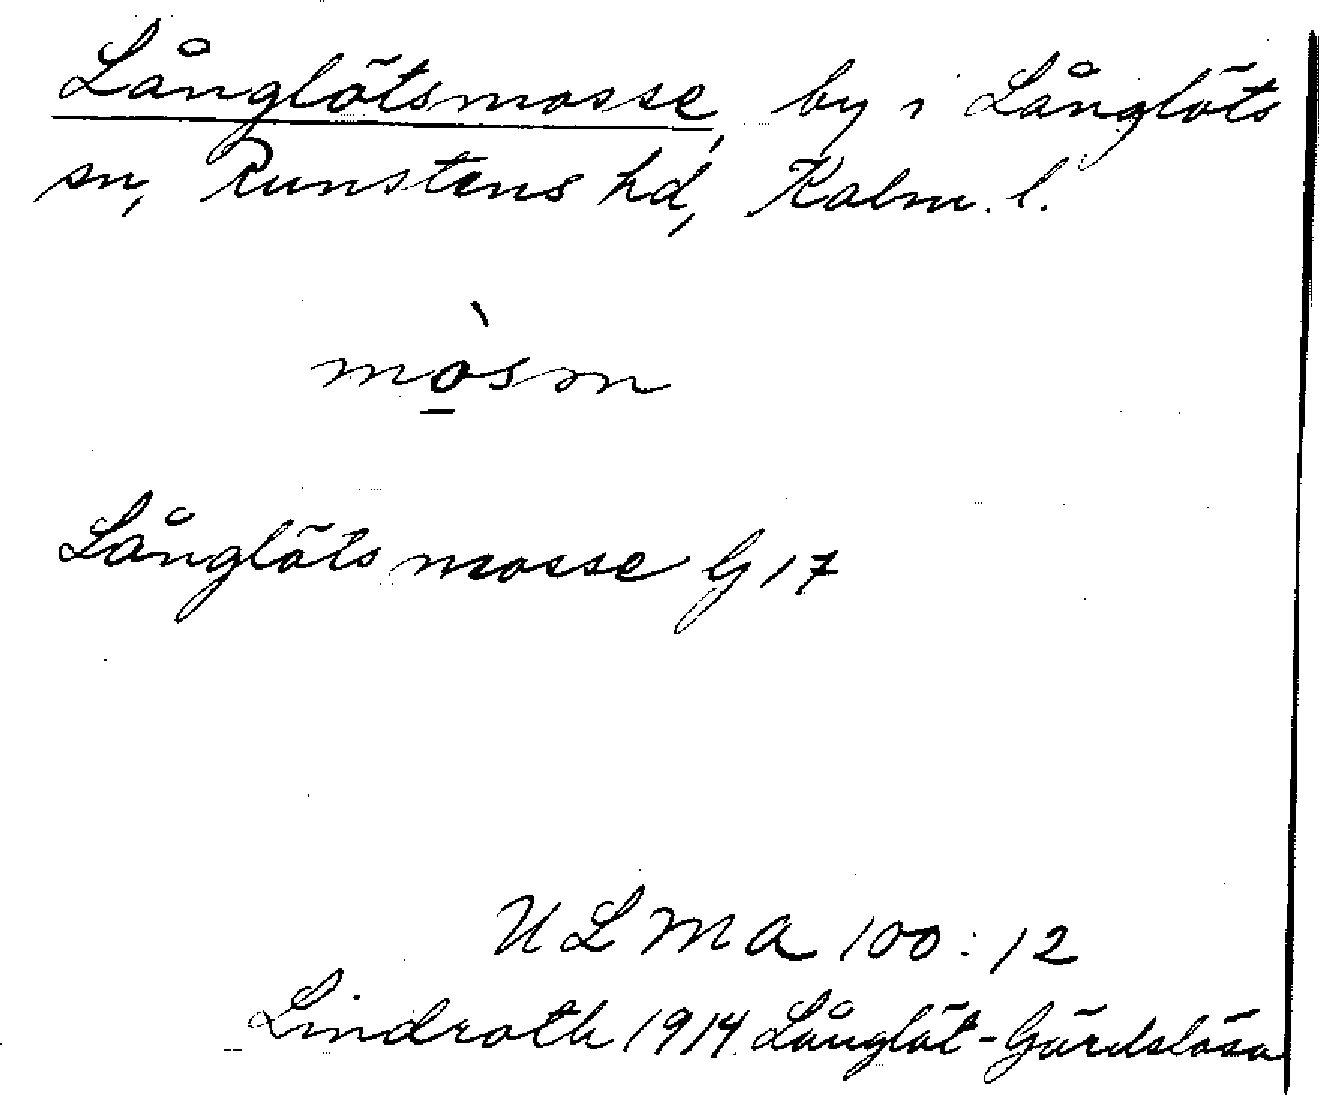 Långlötsmosse, by i Långlöts
sn, Runstens hd, Kalm. l.
mò̲sm
Långlöts mosse G 17
ULMA 100:12
Lindroth 1914 Långlöt-Gärdslösa